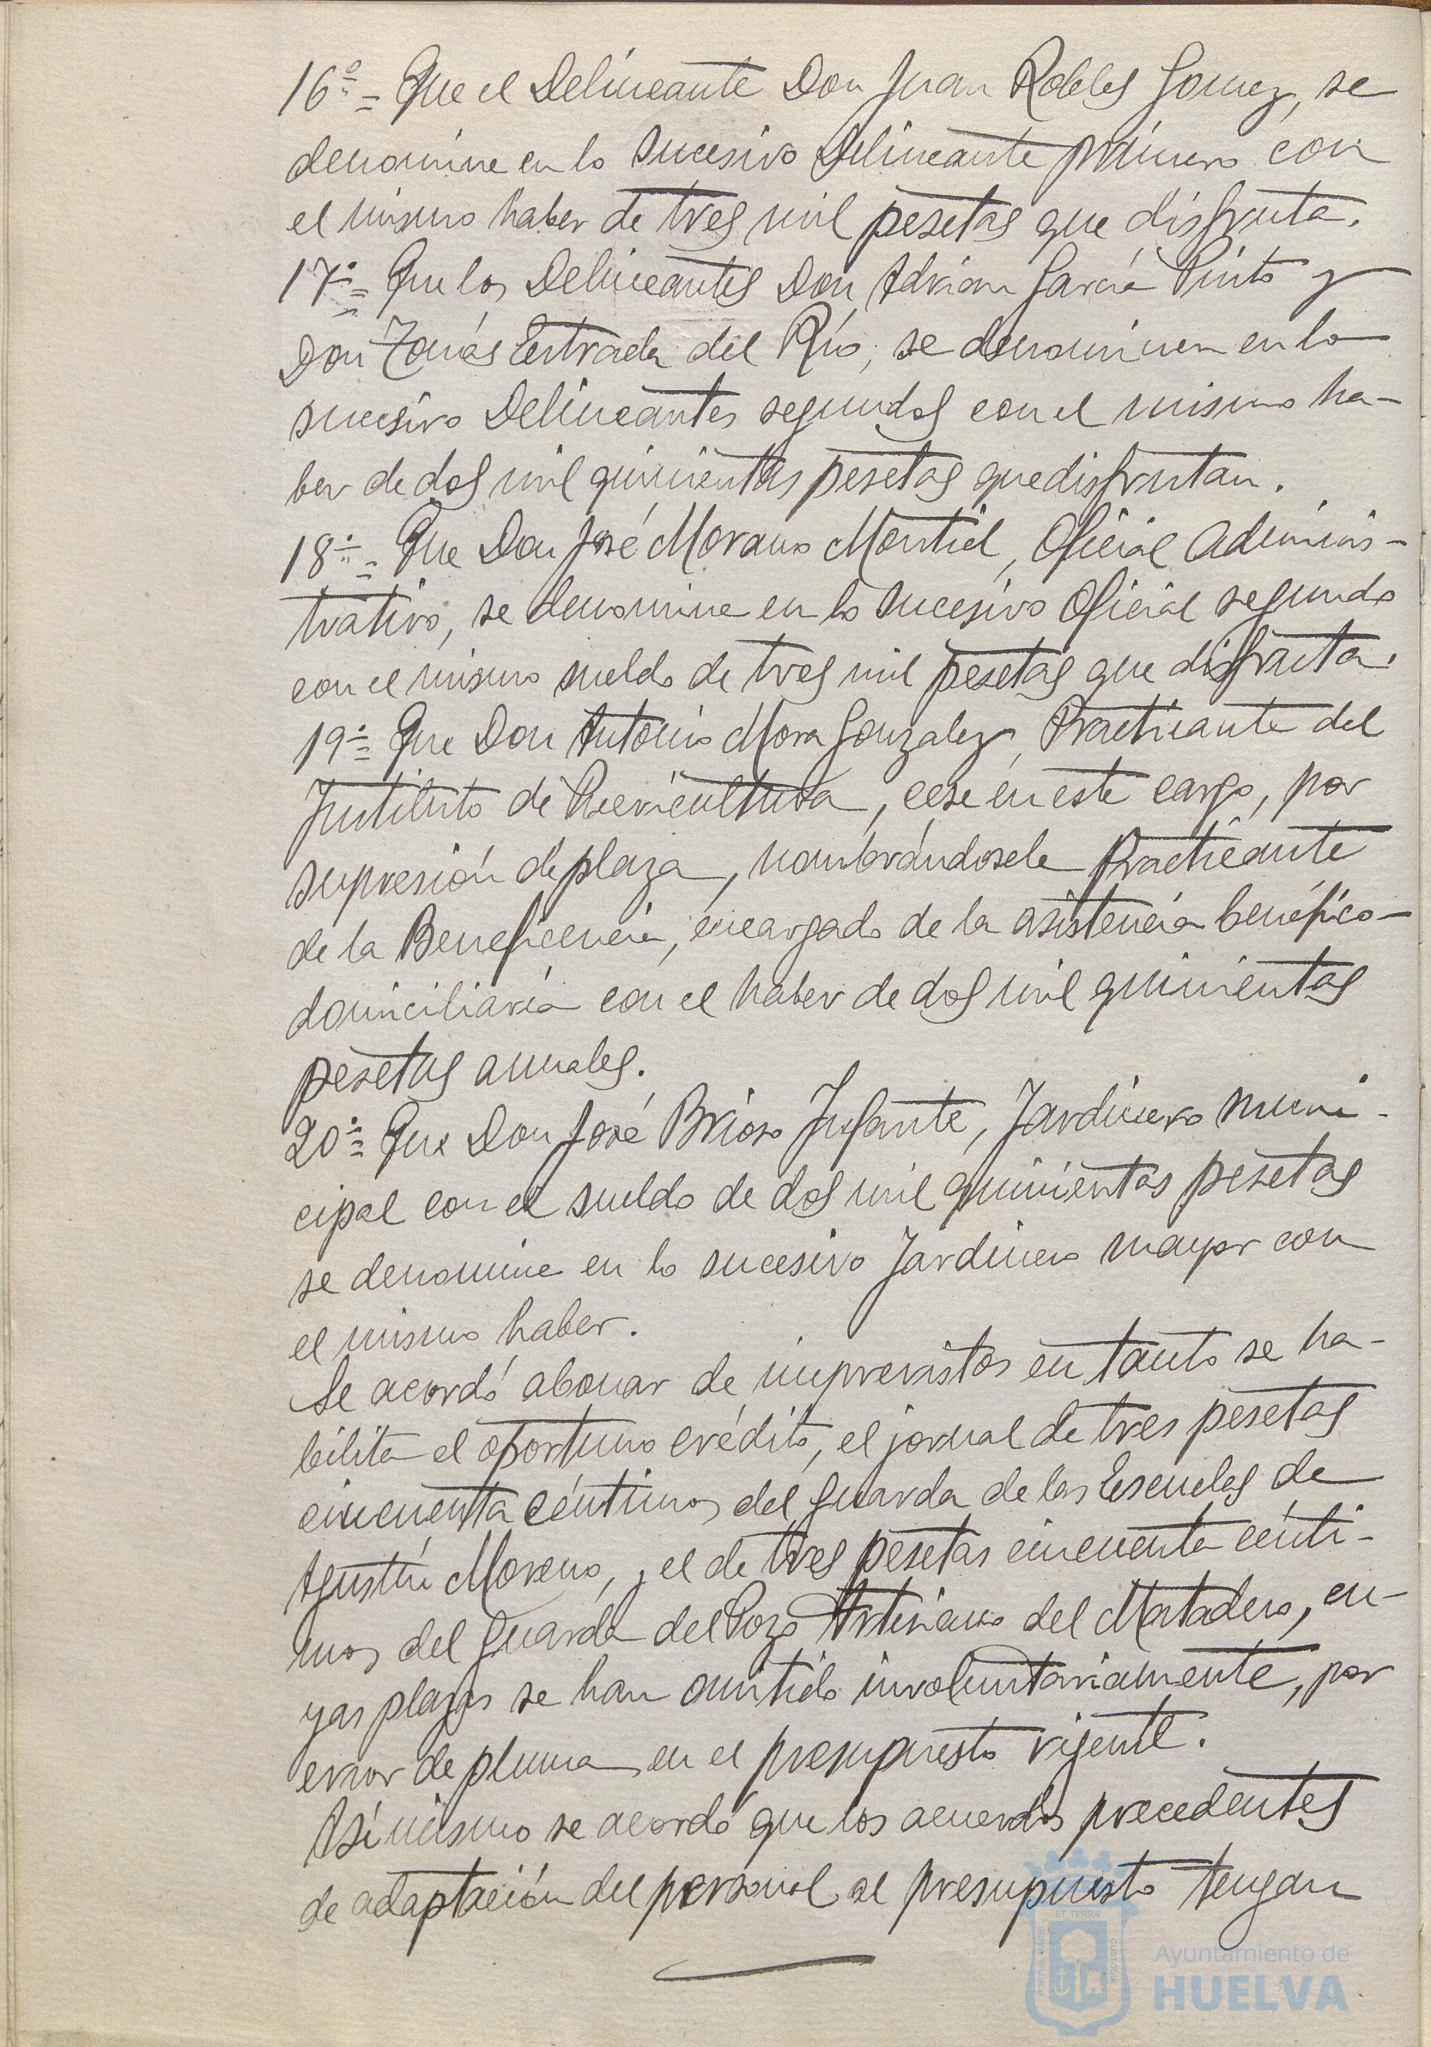 16º= Que el Delineante Don Juan Robles Gomez, se
denomine en lo sucesivo Delineante primero con
el mismo haber de tres mil pesetas que disfruta.
17º= Que los Delineantes Don Adrian García Pinto y
Don Tomás Estrada del Río, se denominen en lo
sucesivo Delineantes segundos con el mismo ha-
ber de dos mil quinientas pesetas que disfrutan.
18º= Que Don José Morano Montiel, Oficial Adminis-
trativo, se denomine en lo sucesivo Oficial segundo
con el mismo sueldo de tres mil pesetas que disfruta.
19º= Que Don Antonio Mora Gonzalez, Practicante del
Instituto de Puericultura, cese en este cargo, por
supresión de plaza, nombrándosele Practicante
de la Beneficencia, encargado de la asistencia benéfico-
domiciliaria con el haber de dos mil quinientas
pesetas anuales.
20º= Que Don José Brioso Infante, Jardinero muni-
cipal con el sueldo de dos mil quinientas pesetas
se denomine en lo sucesivo Jardinero mayor con
el mismo haber.
Se acordó abonar de imprevistos en tanto se ha-
bilita el oportuno crédito, el jornal de tres pesetas
cincuenta céntimos del guarda de las Escuelas de
Agustín Moreno, y el de tres pesetas cincuenta cénti-
mos del guarda del Pozo Artesiano del Matadero, cu-
yas plazas se han omitido involuntariamente, por
error de pluma en el presupuesto vigente.
Asimismo se acordó que los acuerdos precedentes
de adaptación del personal al presupuesto tengan
Ayuntamiento de
HUELVA